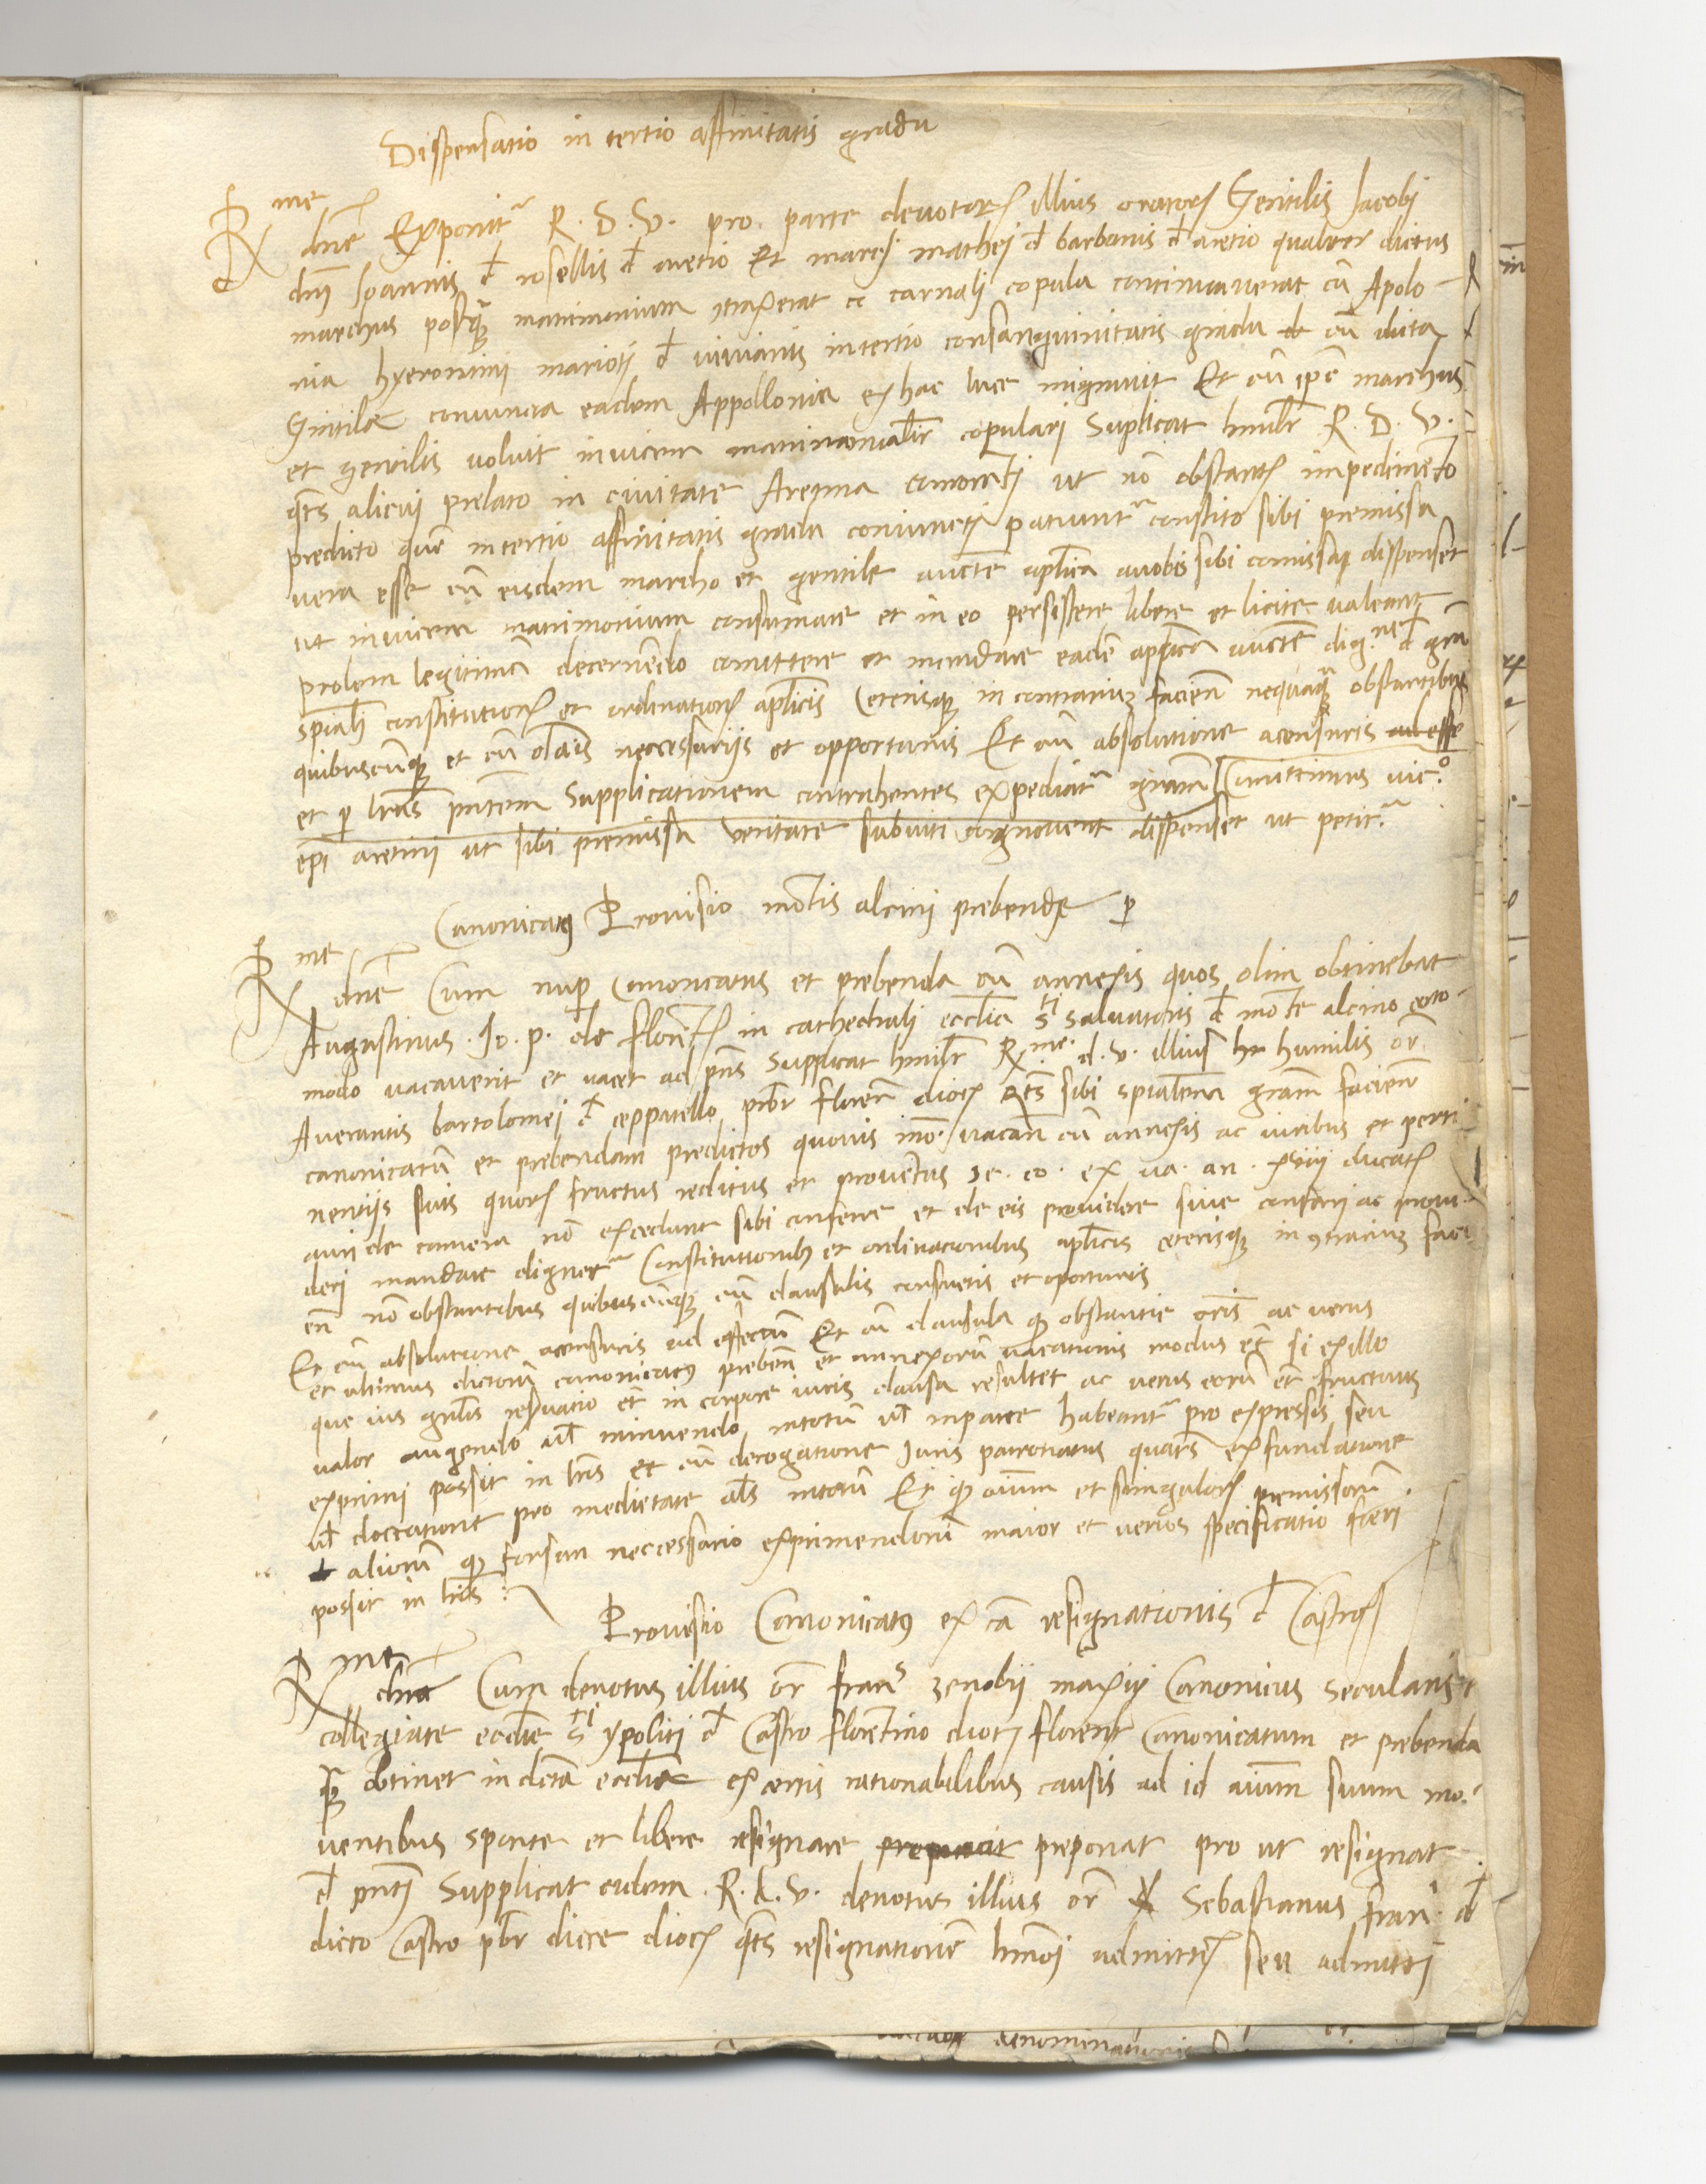 Dispensatio in tertio affinitatis gradu
R.me dne Exponit R. D. V. pro parte devotor illius orator Gentilis Jacobi
dni Joannis d rosellis d aretio Et marci mathei d barbanis d aretio qualiter dictus
marchus postq matrimonium contraxerat ac carnali copula continuaverat cu Apolo-
nia hyeronimi marioti d vivianis in tertio consanguinitatis gradu cu dicta
Gentile coniuncta eadem Appollonia ex hac luce migravit Et cu ipse marchus
et gentilis voluit invicem matrimonialr copulari Suplicat humilr R. D. V.
qts alicui prelato in civitate Aretina comoranti ut no obstante impedimento
predicto que in tertio affinitatis gradu coniuncti patiunt constito sibi premissa
vera esse cu eisdem marcho et gentile aucte aplica a vobis sibi comissa dispenset
ut invicem matrimonium consumare et in eo persistere libere et licite valeant
prolem legitima decernendo comittere et mandare eade aplica aucte dig.ne d gra
spiali constitution et ordination aplicis Ceterisq in contrariu facien nequaq obstantibus
quibuscunq et cu claulis neccessariis et opportunis Et cu absolutione a censuris ad effe
et p lras pntem Supplicationem contrahentes expediat gratiam Comittimus vic.o
epi aretini ut sibi premissa veritate subniti cognoverit dispenset ut petit.r
Canonicatus Provisio motis alcini prebende p
R.me dne Cum nup canonicatus et prebenda cu annexis quos olim obtinebat
Augustinus . Jo. p. de floren in cathedrali ecclia s.ti Salvatoris d monte alcino eo
modo vacaverit et vacet ad pns Supplicat humilr R.me d. v. illius humilis or
Averantis bartolomei d ceppatello pbr floren dioc Qts sibi spialem gram facien
canonicatu et prebendam predictos quovis mo. vacan cu annexis ac iuribus et perti
nentiis suis quor fructus reditus et proventus
auri de camera no excedunt sibi conferre et de eis providere sive conferri ac provi-
deri mandare dignet Constitutionibus et ordinationibus aplicis ceterisq in contrariu faci
en no obstantibus quibuscunq cu clausulis consuetis et oportunis
Et cu absolutione a censuris ad effectu Et cu clausula q obstantie oris ac verus
et ultimus dictoru canonicatus preben et annexoru vacationis modus et si ex illo
que ius gnlis resvatio et in corpore iuris clausa resultet ac verus eoru et fructuus
valor augendo vl minuendo in totu vl in parte habeant pro expressis seu
exprimi possit in lris et cu derogatione Juris patronatus quats ex fundatione
vl dotatione pro medietate als in totu Et q oium et singulor premissoru
aliorum q forsan neccessario exprimendoru maior et verior specificatio fieri
possit in lris :
Provisio Canonicatus ex ca resignationis d Castro
R.me dne Cum devotus illius or fran.s zenobii Canonicus secularis
collegiate ecclie s.ti ypoliti d Castro florentino dioc florent Canonicatum et prebenda
q obtinet in dicta ecclia ex certis rationabilibus causis ad id aium suum mo-
ventibus sponte et libere resignare preponat pro ut resignat
d pnti Supplicat eidem . R. d. v. devotus illius or Sebastianus fran. d
dicto Castro pbr dicte dioc qts resignatione hmoi admitte seu admitti
denominationis